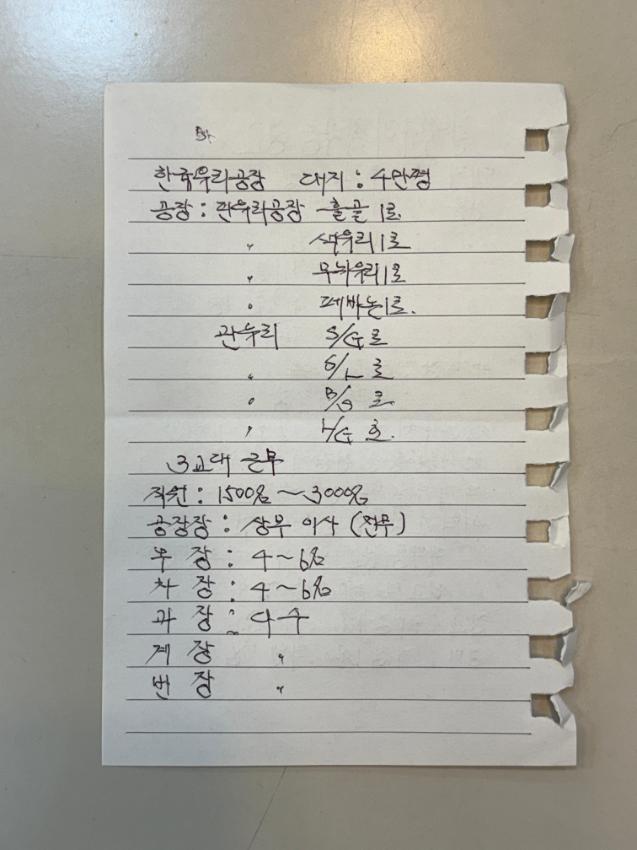 한국유리공장 대지 : 4만평
공장 : 판유리공장 1로
〃 색유리 1로
〃 무늬유리 1로
〃 1로.
판유리 S/G 로
〃 S/L 로
〃 B/G 로.
〃 L/G 로.
3교대 근무
직원 : 1500名 ~ 3000名
공장장 : 상무 이사 (전무)
부 장 : 4 ~ 6名
차 장 : 4 ~ 6名
과 장 : 다수
계 장 〃
반 장 〃